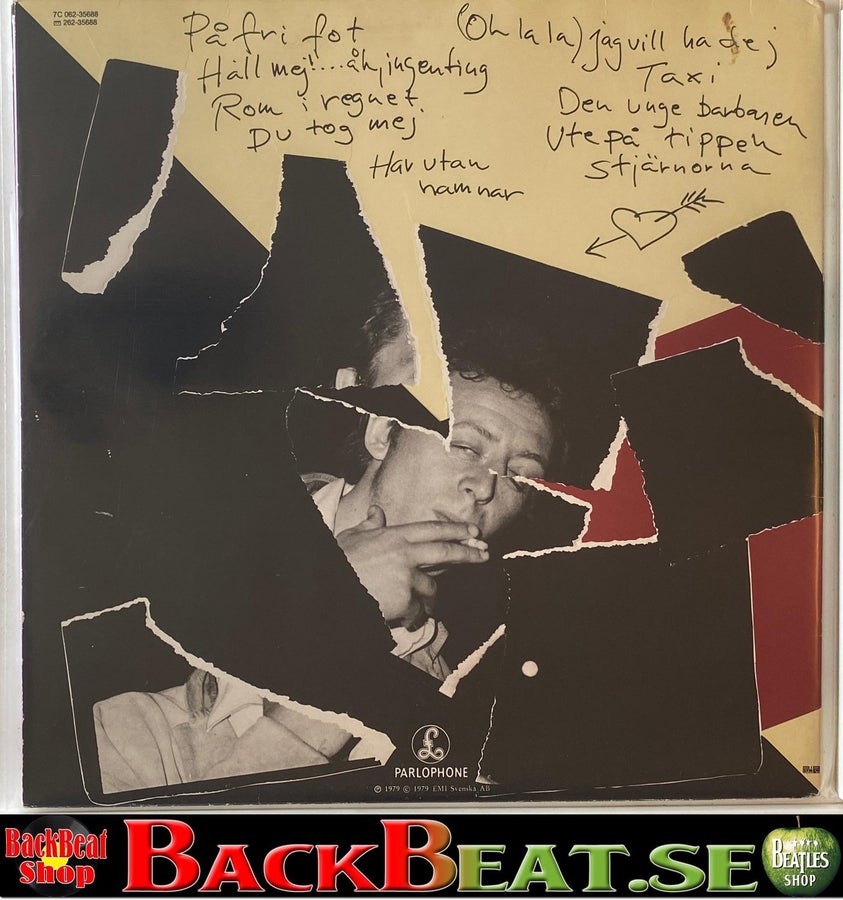 7C 062-35688
262-35688
På fri fot
Håll mej!...åh, ingenting
Rom i regnet.
Du tog mej
Hav utan
namnar
(Oh la la) jag vill ha dej
Taxi
Den unge barbaren
Ute på tippen
Stjärnorna
£
PARLOPHONE
℗ 1979 © 1979 EMI Svenska AB
BackBeat
Shop
BACKBEAT.SE
BEATLES
SHOP